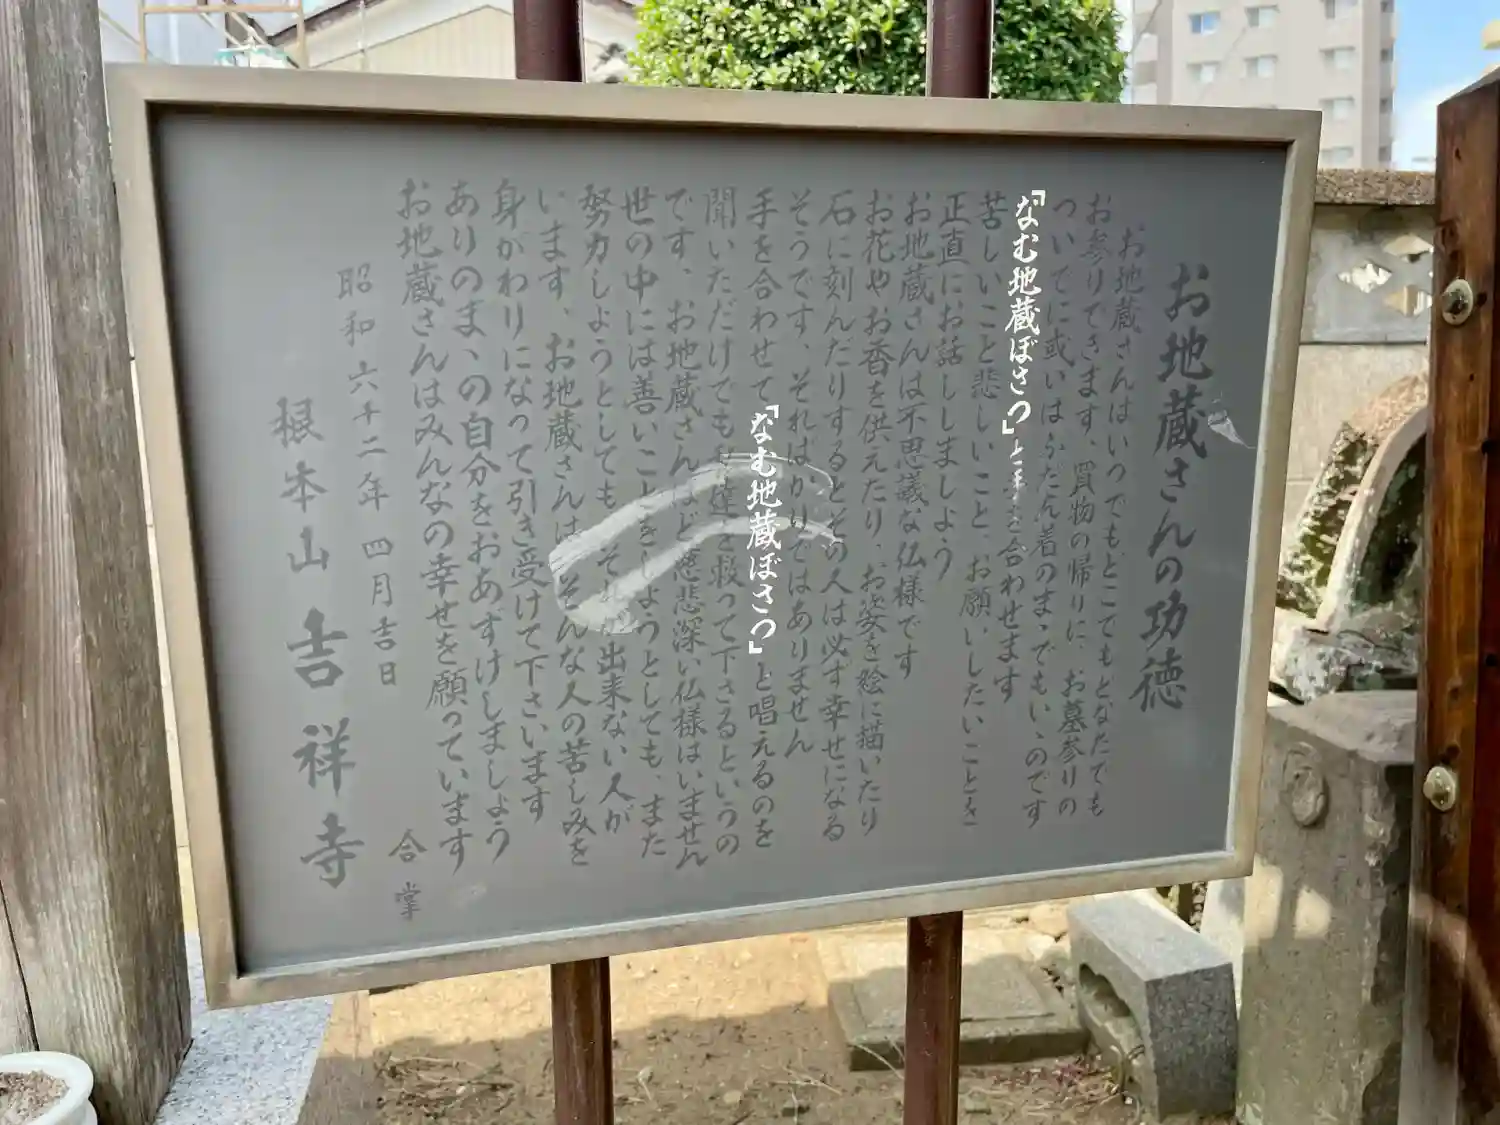 お地蔵さんの功徳
お地蔵さんはいつでもどこでもどなたでも
お参りできます、買物の帰りに、お墓参りの
ついでに或いはふだん着のまゝでもいゝのです
「なむ地蔵ぼさつ」と手を合わせます
苦しいこと悲しいこと、お願いしたいことを
正直にお話ししましよう
お地蔵さんは不思議な仏様です
お花やお香を供えたり、お姿を絵に描いたり
石に刻んだりするとその人は必ず幸せになる
そうです、そればかりではありません
手を合わせて「なむ地蔵ぼさつ」と唱えるのを
聞いただけでも を救って下さるというの
です、お地蔵さんほど慈悲深い仏様はいません
世の中には善いことをしようとしても、また
努力しようとしても、それが出来ない人が
います、お地蔵さんはそんな人の苦しみを
身がわりになって引き受けて下さいます
ありのまゝの自分をおあずけしましょう
お地蔵さんはみんなの幸せを願っています
昭和六十二年 四月吉日 合掌
根本山 吉祥寺